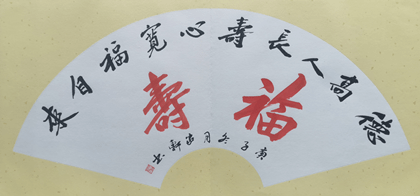 德高人長壽心寬福自來
福壽
庚子冬月书